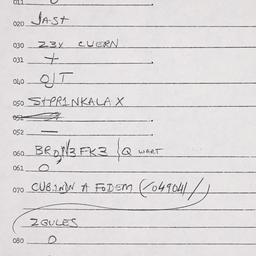 011
020 JAST
030 Z3Y CUERN
031 +
040 OJT
050 STPR1NKALAX
051
052 —
060 BRD 3FK3 / Q WART
061 O
070 CUB.1NIN A FODEM (/04904//)
2GULES
080 O